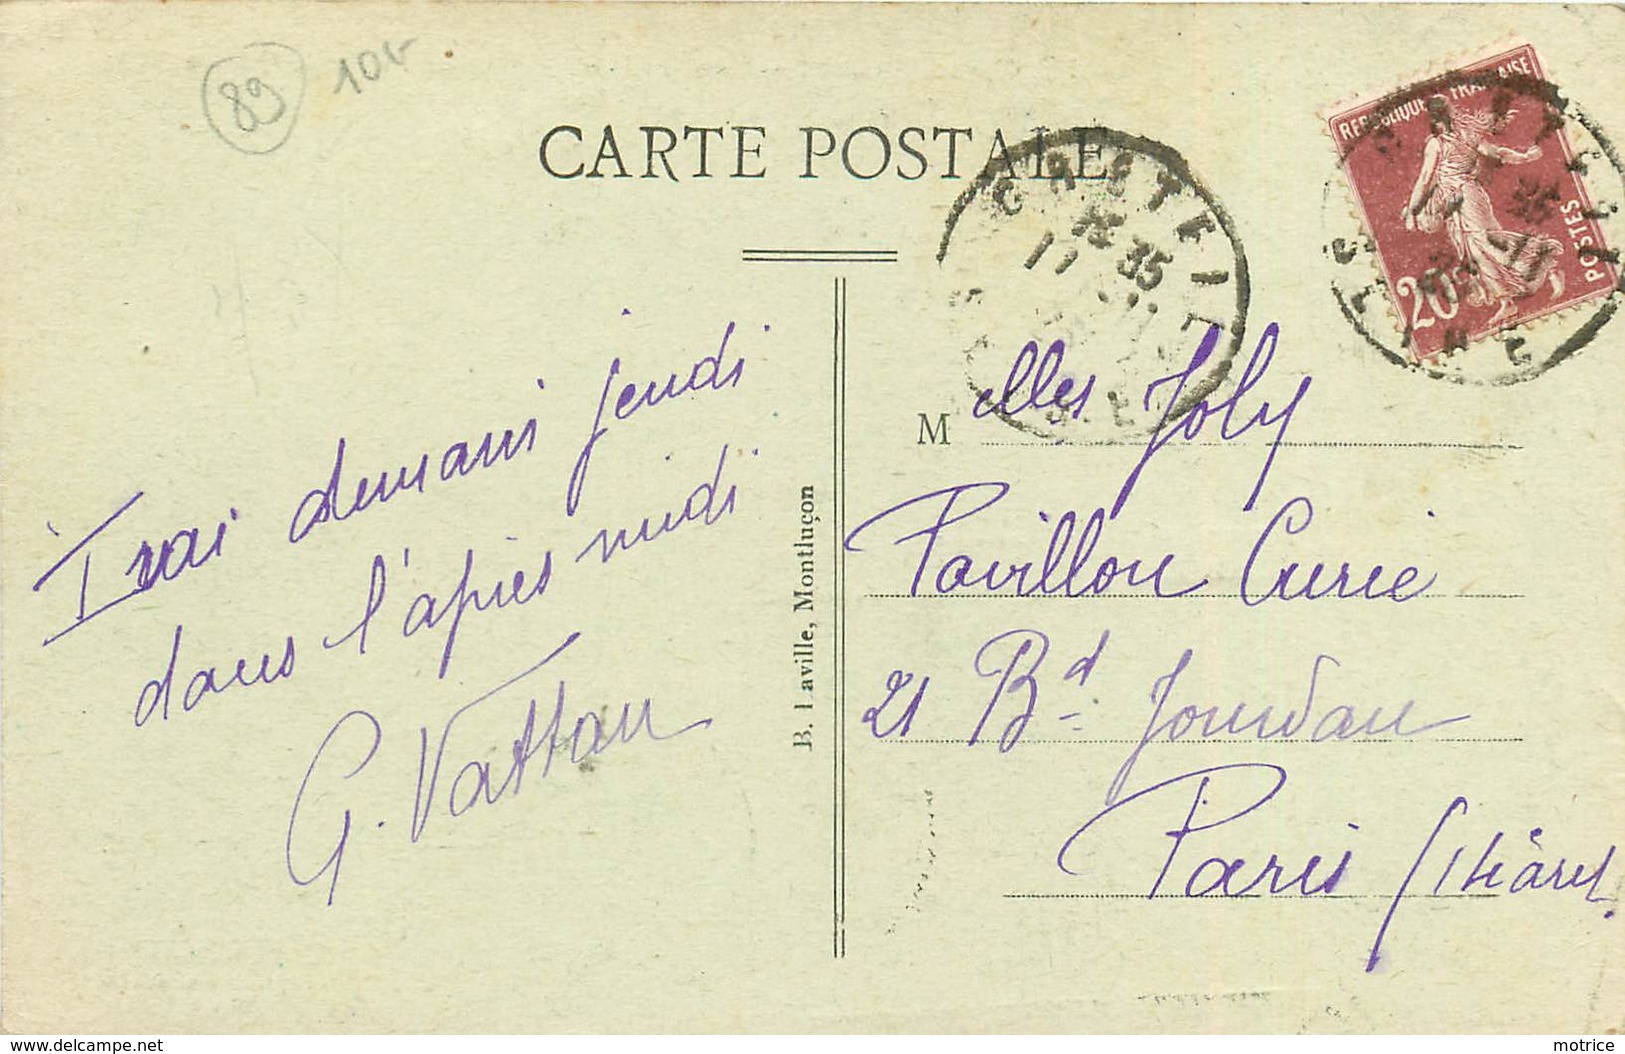 89
10F
CARTE POSTALE
REPUBLIQUE FRANÇAISE
POSTES
20c
CRETEIL
16 35
17 -11
SEINE
Irai demain jeudi
dans l'après midi
G. Vattan
B. Laville, Montluçon
M elles Joly
Pavillon Curie
21 Bd Jourdan
Paris